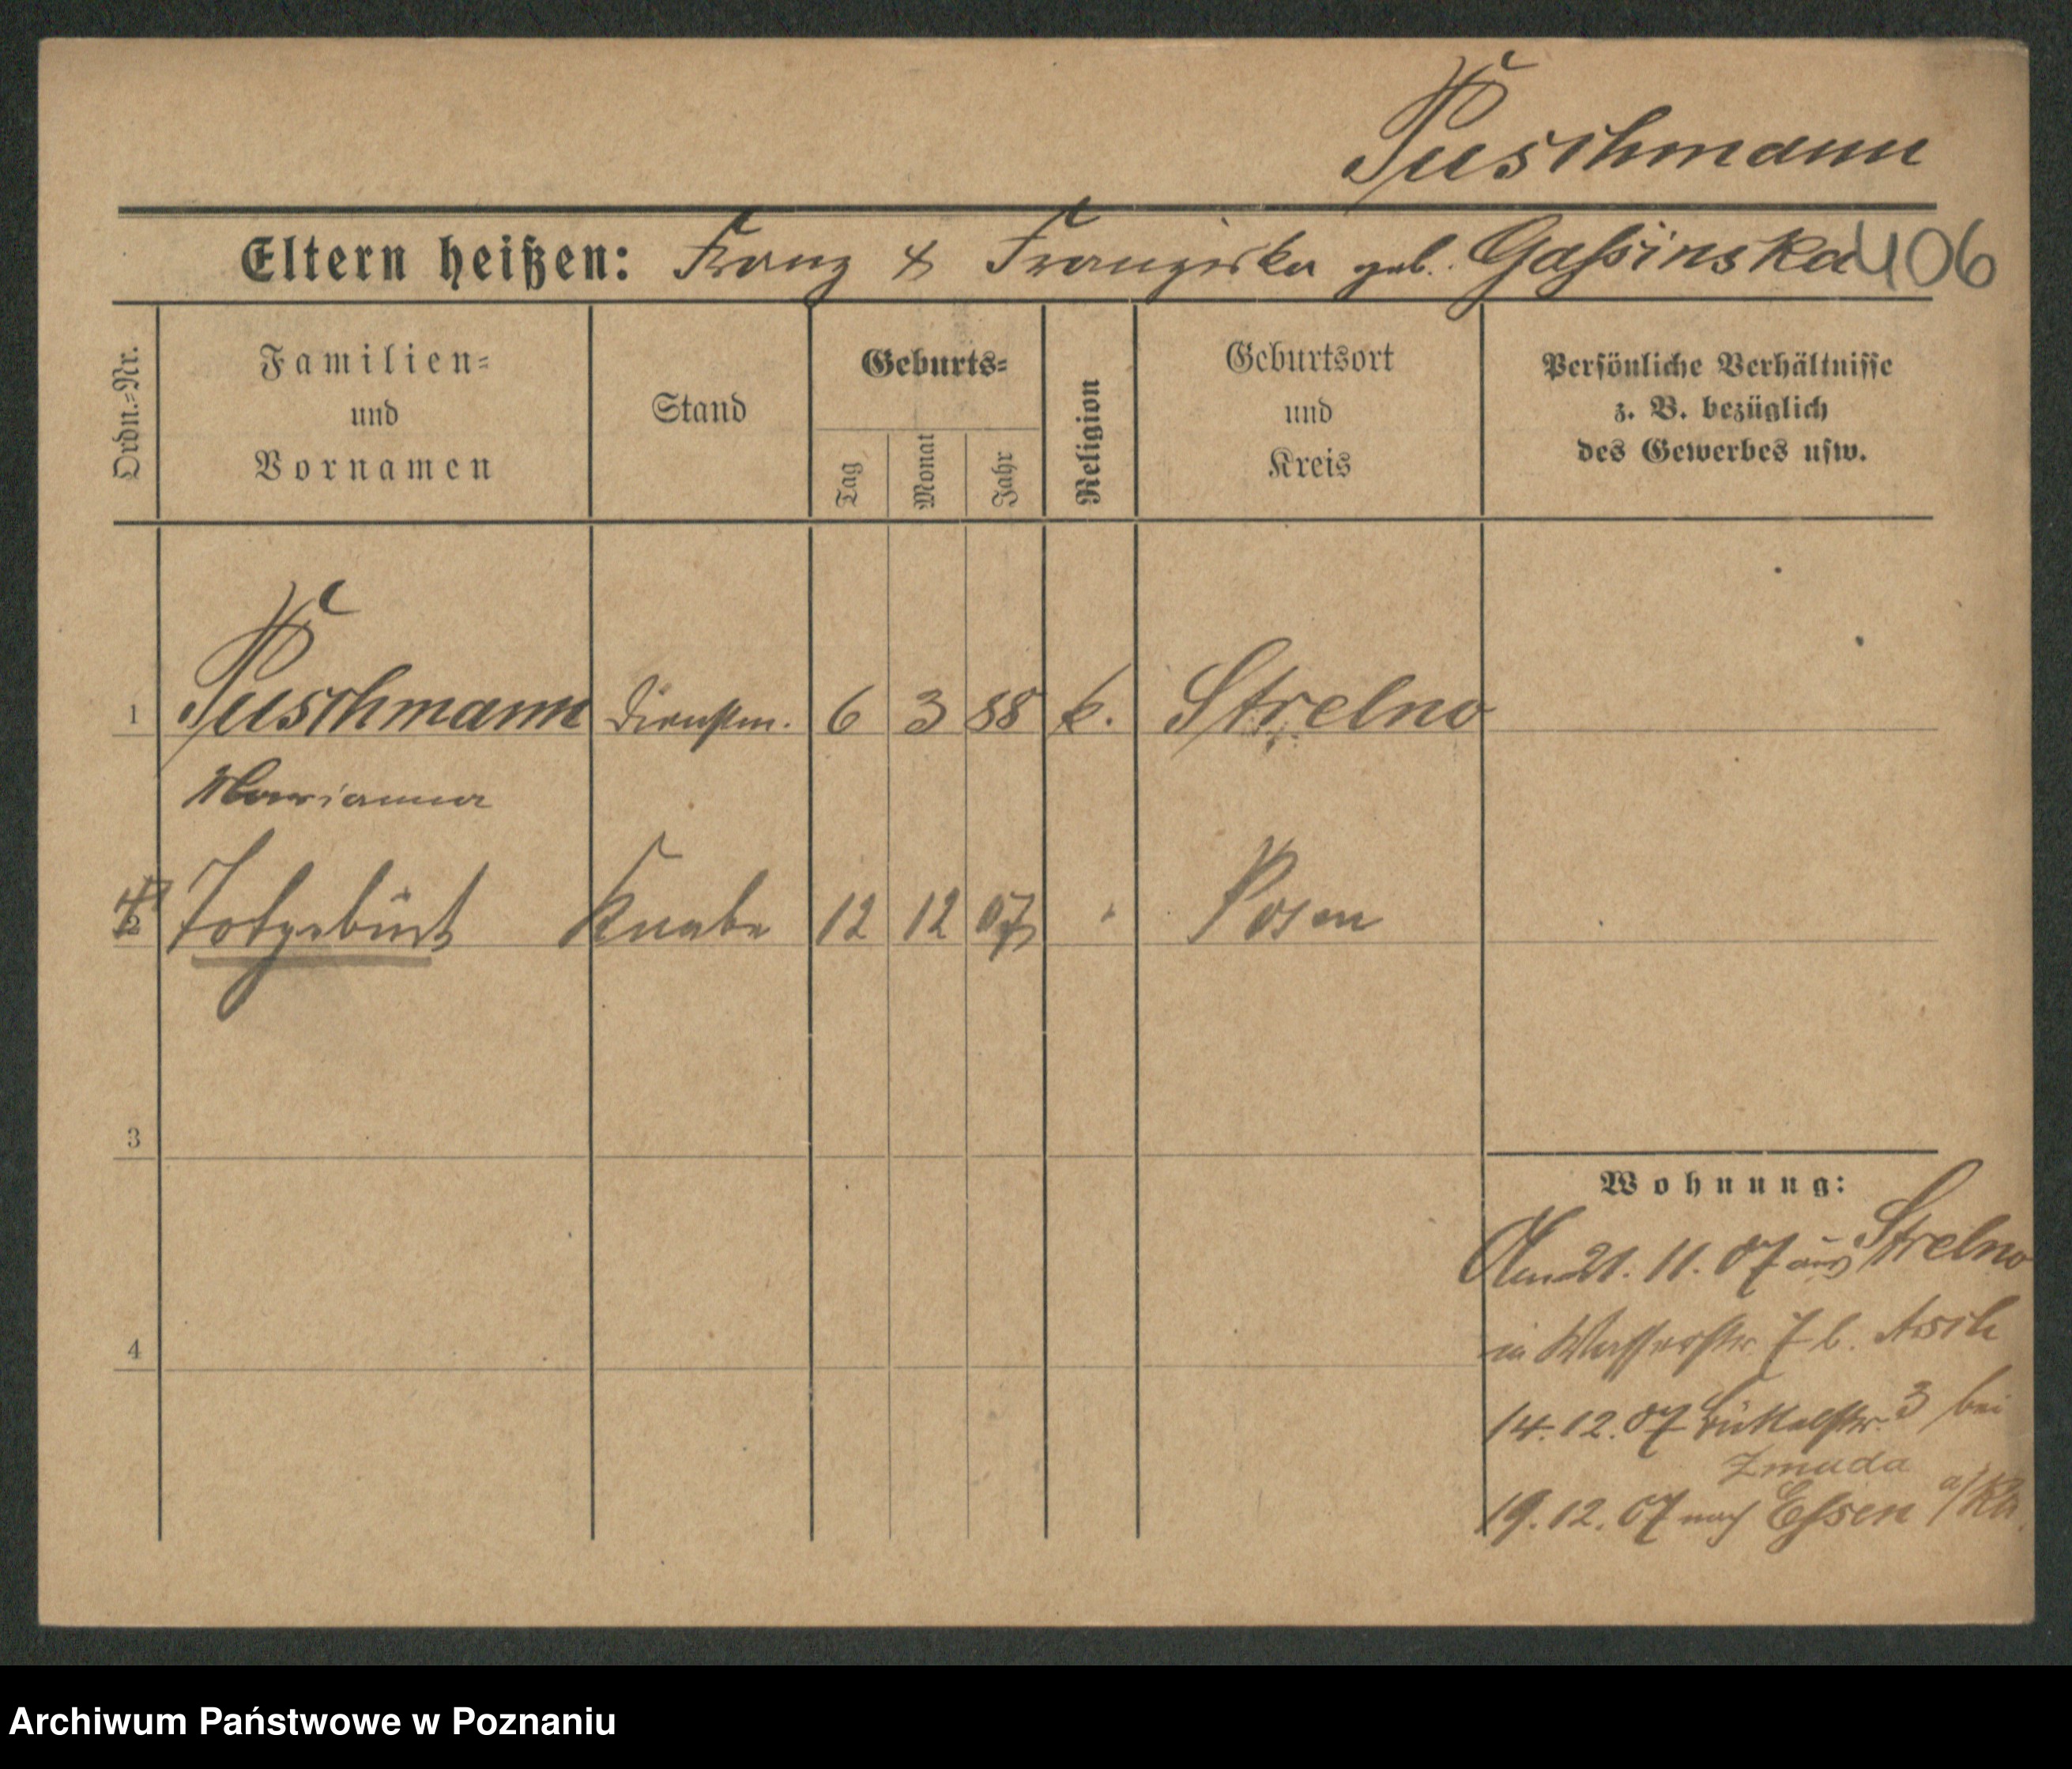 Puschmann
Eltern heißen: Franz & Franziska geb. Gaßinska 406
Ordn.-Nr.
Familien-
und
Vornamen
Stand
Geburts-
Tag
Monat
Jahr
Religion
Geburtsort
und
Kreis
Persönliche Verhältnisse
z. B. bezüglich
des Gewerbes usw.
1 Puschmann Dienstm. 6 3 88 k. Strelno
Marianna
2 Totgeburt Knabe 12 12 07 " Posen
3
4
Wohnung:
Am 21. 11. 07 aus Strelno
in Wasserstr. 7 b.
14. 12. 07 Büttelstr. 3 bei
Zmuda
19. 12. 07 nach Eßen a/Rh.
Archiwum Państwowe w Poznaniu